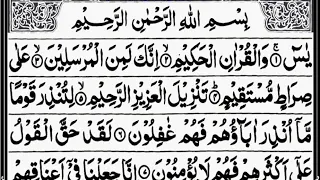 بِسْمِ اللّٰهِ الرَّحْمٰنِ الرَّحِیْمِ
یٰسٓ ۝۱ وَالْقُرْاٰنِ الْحَكِیْمِ ۝۲ اِنَّكَ لَمِنَ الْمُرْسَلِیْنَ ۝۳ عَلٰی
صِرَاطٍ مُّسْتَقِیْمٍ ۝۴ تَنْزِیْلَ الْعَزِیْزِ الرَّحِیْمِ ۝۵ لِتُنْذِرَ قَوْمًا
مَّاۤ اُنْذِرَ اٰبَآؤُهُمْ فَهُمْ غٰفِلُوْنَ ۝۶ لَقَدْ حَقَّ الْقَوْلُ
عَلٰۤی اَكْثَرِهِمْ فَهُمْ لَا یُؤْمِنُوْنَ ۝۷ اِنَّا جَعَلْنَا فِیْۤ اَعْنَاقِهِمْ